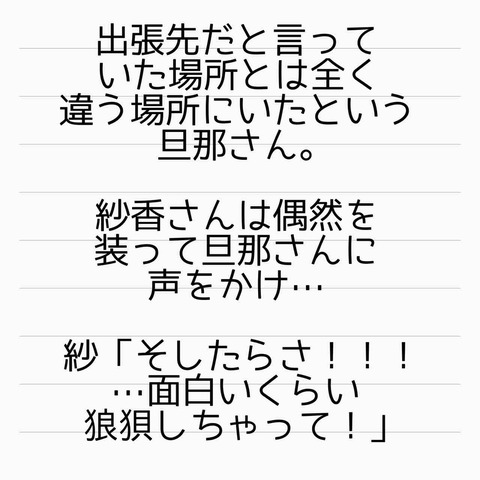 出張先だと言って
いた場所とは全く
違う場所にいたという
旦那さん。
紗香さんは偶然を
装って旦那さんに
声をかけ…
紗「そしたらさ！！！
…面白いくらい
狼狽しちゃって！」